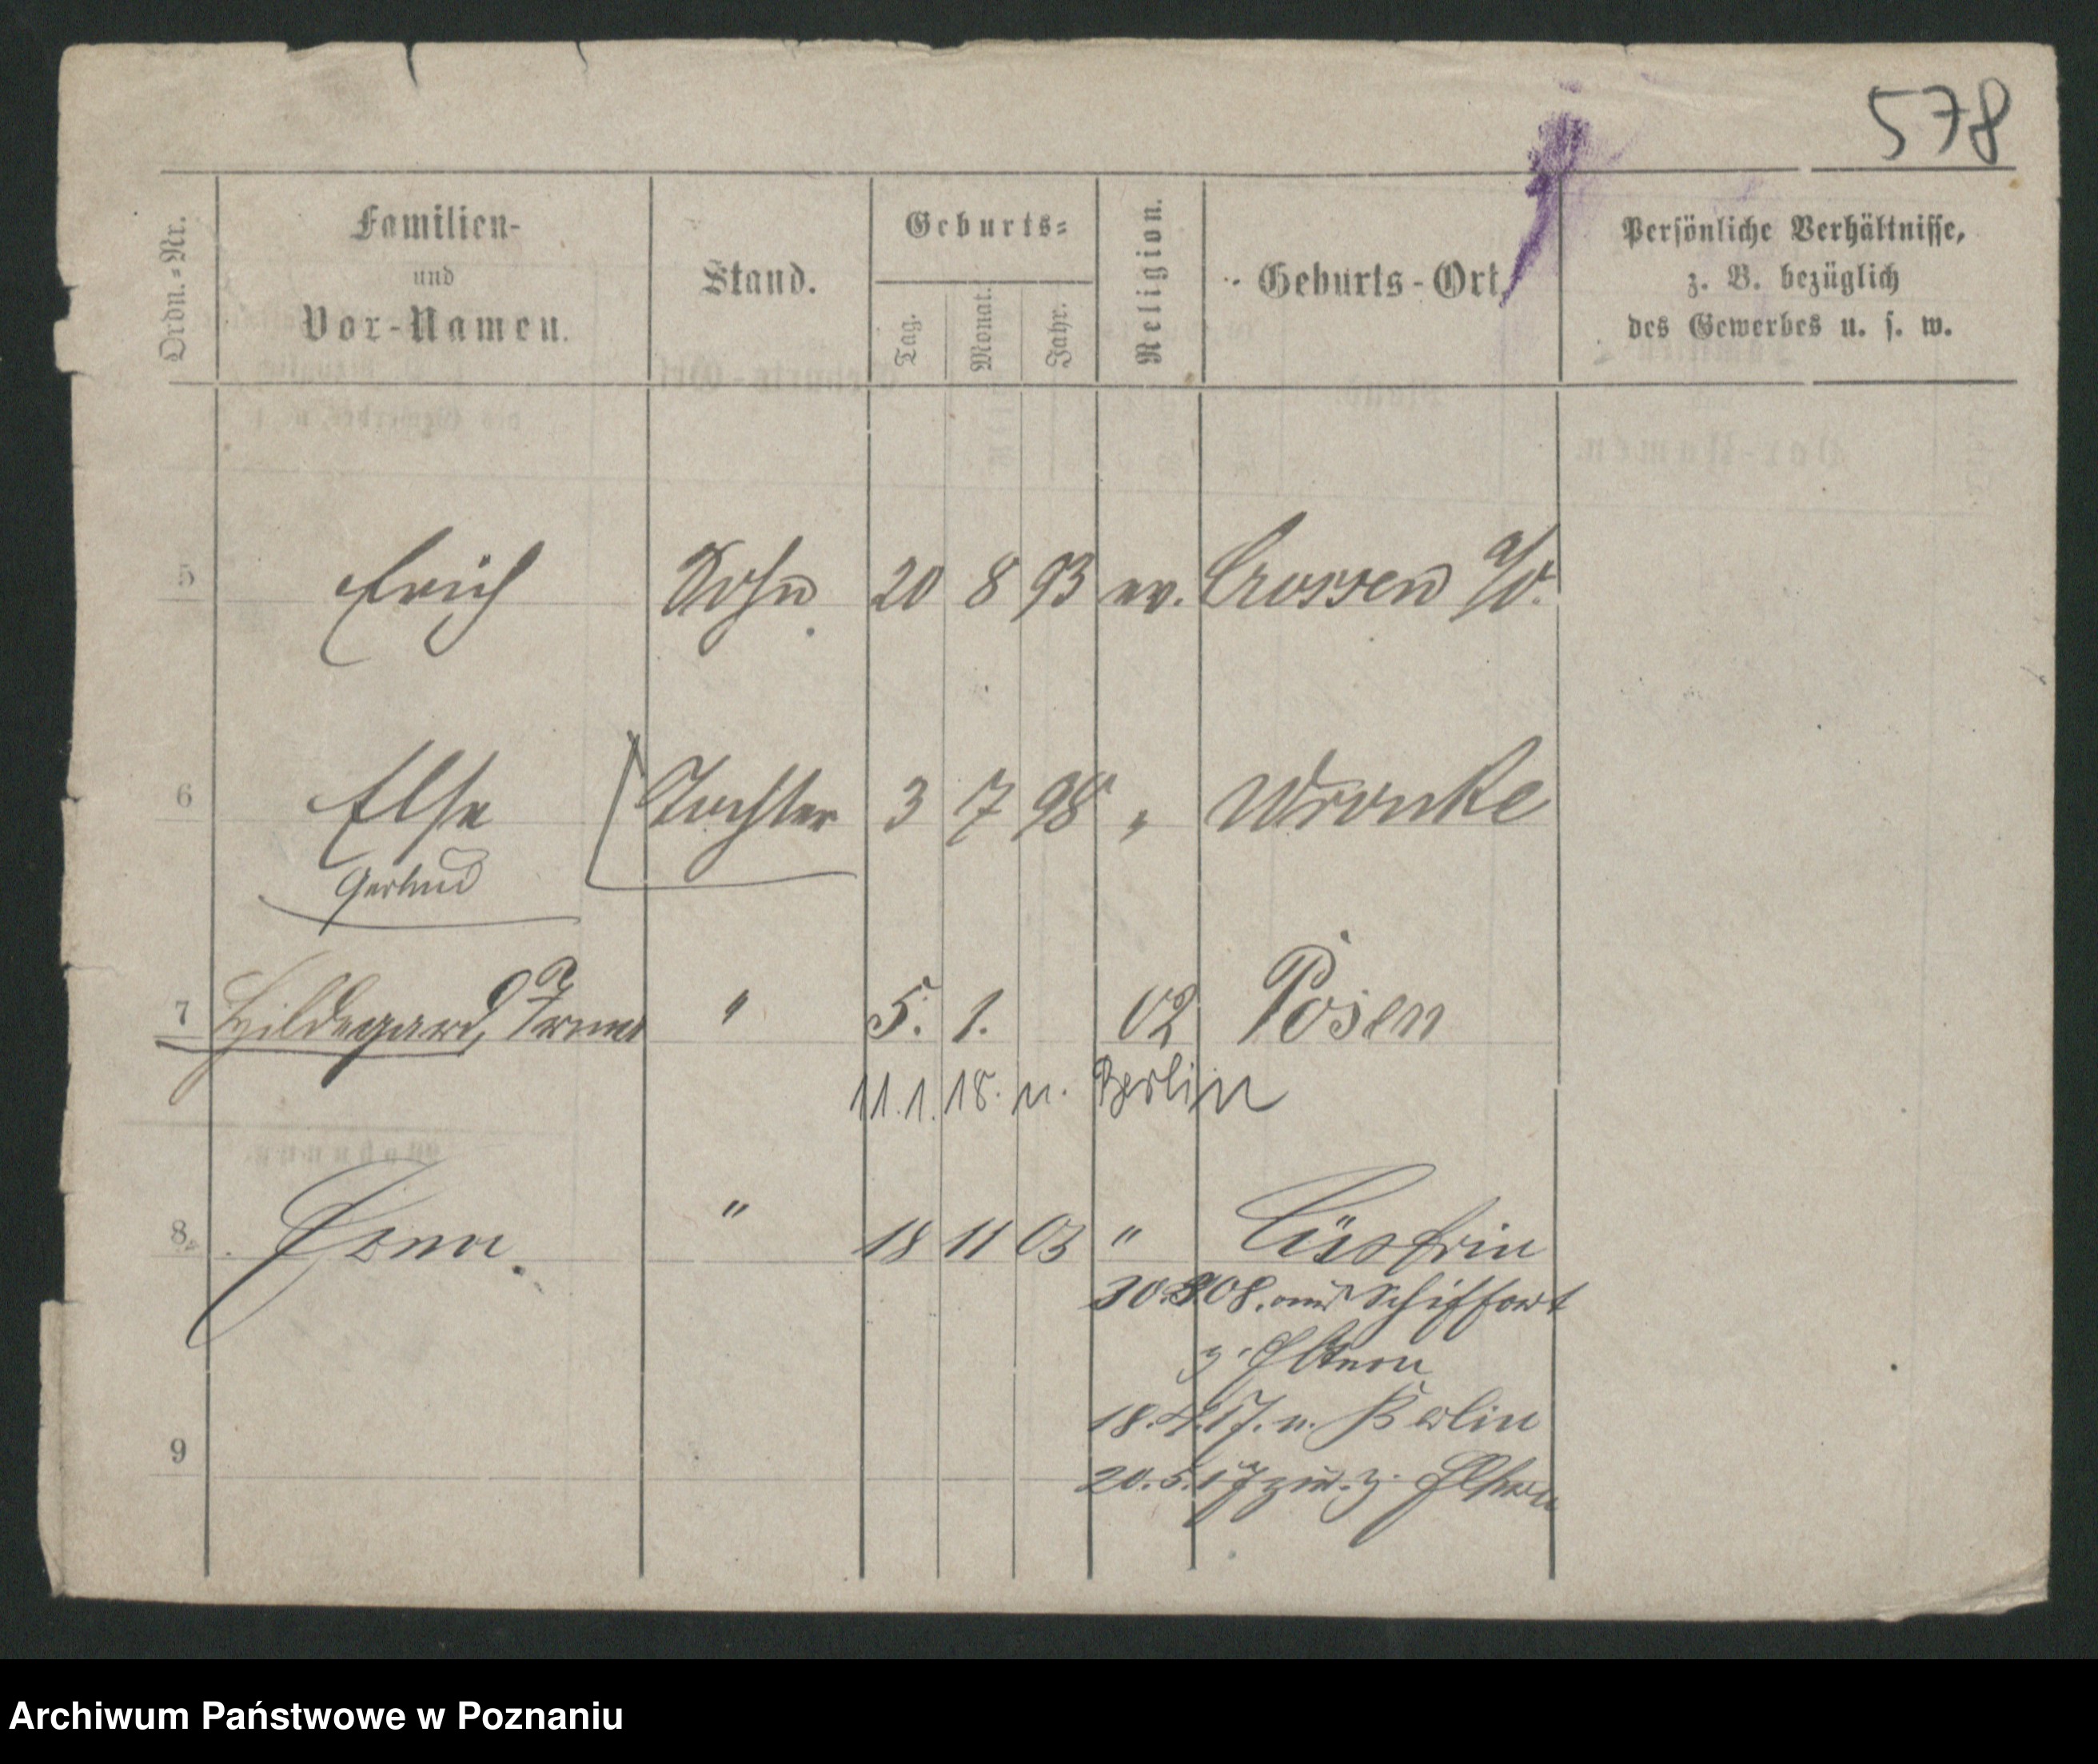 578
Ordn.-Nr.
Familien-
und
Vor-Namen.
Stand.
Geburts-
Tag.
Monat.
Jahr.
Religion.
Geburts-Ort.
Persönliche Verhältnisse,
z. B. bezüglich
des Gewerbes u. s. w.
5 Erich Sohn 20 8 93 ev. Crossen a/O.
6 Else Tochter 3 7 98 " Wronke
Gertrud
7 Hildegard, " 5. 1. 02 Posen
11.1.18. n. Berlin
8. " 18 11 03 " Cüstrin
08. aus
z. Eltern
18.4.17. n. Berlin
9
20.5.17 zur. z. Eltern
Archiwum Państwowe w Poznaniu